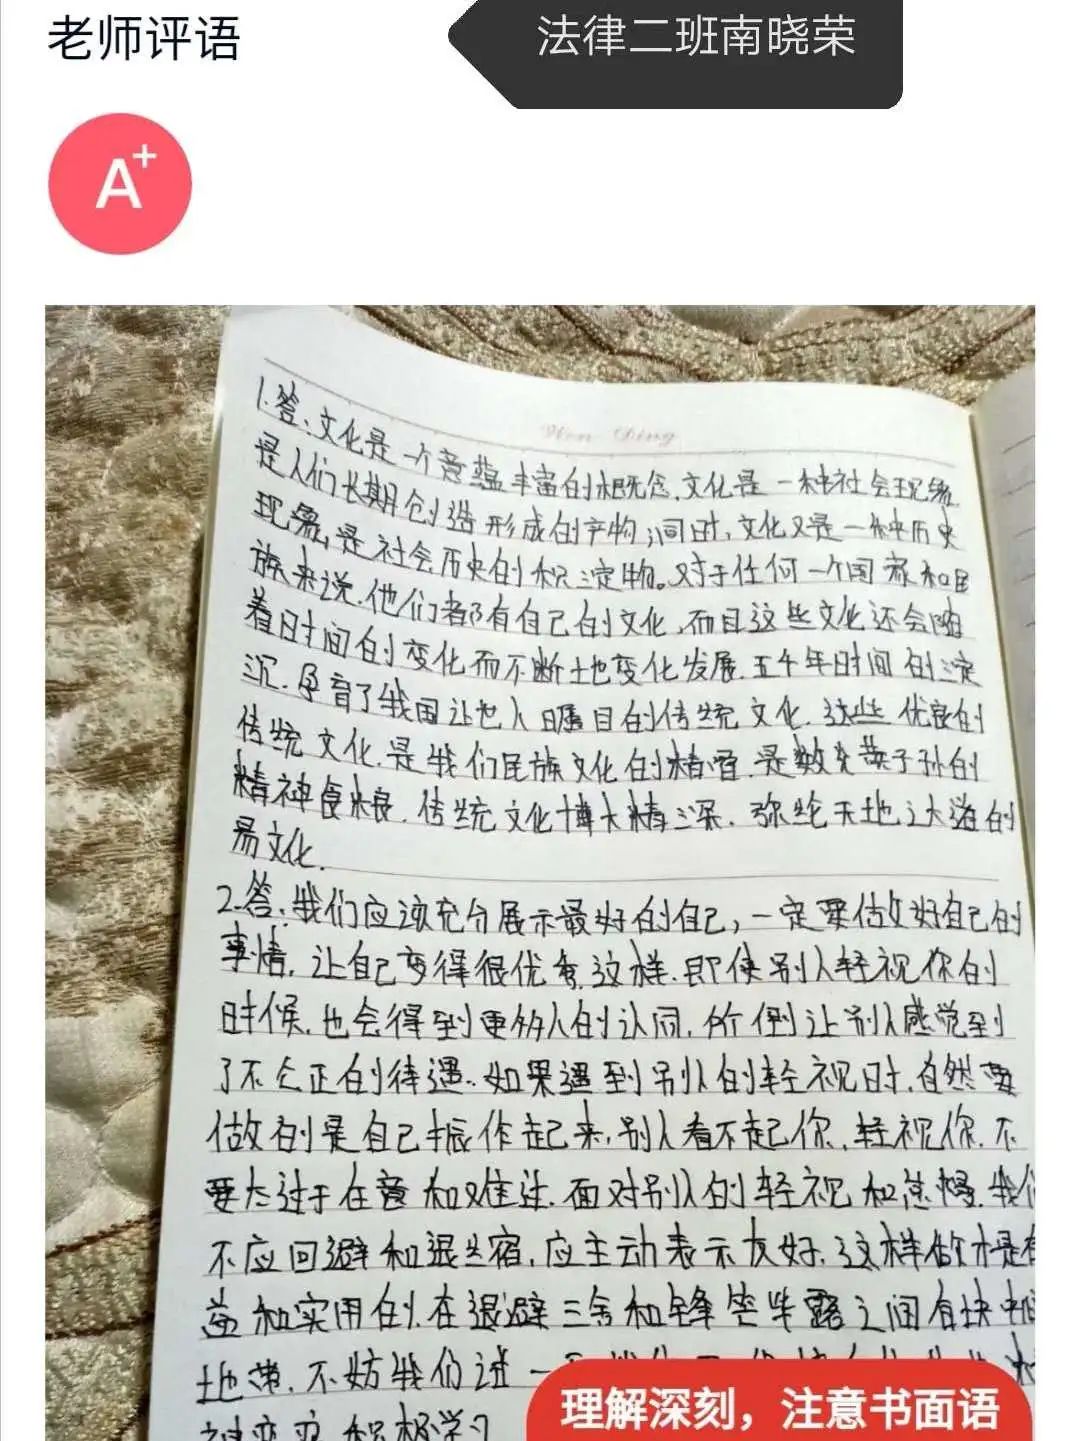 老师评语
法律二班南晓荣
A+
1.答:文化是一个意蕴丰富的概念,文化是一种社会现象
是人们长期创造形成的产物;同时,文化又是一种历史
现象,是社会历史的积淀物。对于任何一个国家和民
族来说,他们都有自己的文化,而且这些文化还会随
着时间的变化而不断地变化发展.五千年时间的淀
沉.孕育了我国让世人瞩目的传统文化.这些优良的
传统文化.是我们民族文化的精髓.是数炎黄子孙的
精神食粮.传统文化博大精深.弥纶天地之大道的
易文化.
2.答.我们应该充分展示最好的自己,一定要做好自己的
事情,让自己变得很优秀.这样.即使别人轻视你的
时候.也会得到更多人的认同,你倒让别人感觉到
了不公正的待遇.如果遇到别人的轻视时.自然要
做的是自己振作起来,别人看不起你,轻视你.不
要太过于在意和难过.面对别人的轻视和怠慢.我们
不应回避和退缩,应主动表示友好.这样做才是有
益和实用的.在退避三舍和锋芒毕露之间有块中间
地带.不妨我们试一
积极学习
理解深刻，注意书面语